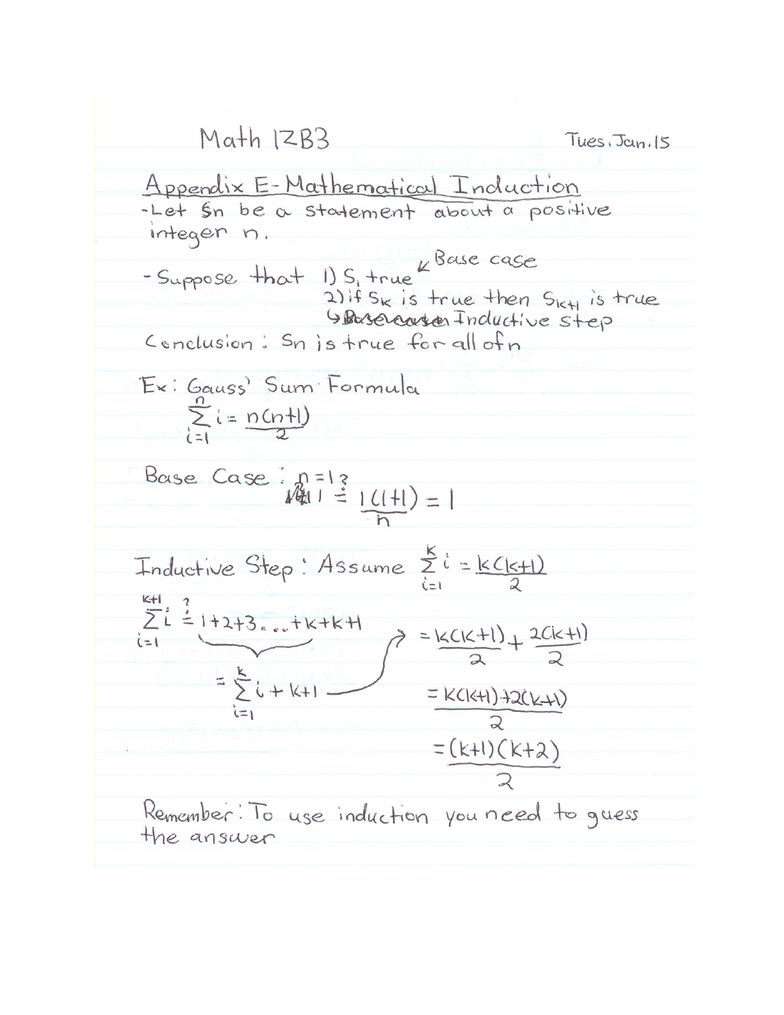 Math 1ZB3
Tues. Jan. 15
Appendix E - Mathematical Induction
- Let Sn be a statement about a positive
integer n.
↙ Base case
- Suppose that 1) S₁ true
2) if Sₖ is true then Sₖ₊₁ is true
↳ Inductive step
Conclusion: Sn is true for all of n
Ex: Gauss' Sum Formula
n
Σ i = n(n+1)/2
i=1
Base Case: n=1?
1 ≟ 1(1+1)/n = 1
Inductive Step: Assume ∑_{i=1}^{k} i = k(k+1)/2
∑_{i=1}^{k+1} i ≟ 1+2+3...+k+k+1
= ∑_{i=1}^{k} i + k+1
= k(k+1)/2 + 2(k+1)/2
= k(k+1)+2(k+1)/2
= (k+1)(k+2)/2
Remember: To use induction you need to guess
the answer